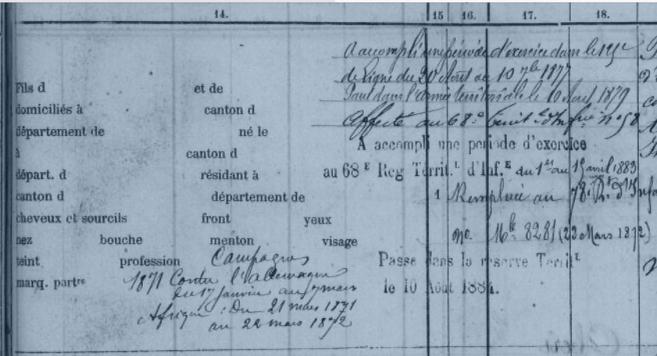 14. 15 16. 17. 18.
A accompli une période d'exercice dans le
de ligne du 20 Août au 10 7bre 1877
Fils d et de
Passé dans l'armée territoriale le 10 Août 1879
domiciliés à canton d
Affecté au 68e Territ. d'Infie n° 58
département de né le
A accompli une période d'exercice
à canton d
au 68E Reg Territ.L d'Inf.E du 1er au 15 avril 1883
départ. d résidant à
1 au 78.
canton d département de
cheveux et sourcils front yeux
no. Mle 8281 (22 Mars 1872)
nez bouche menton visage
Passe dans la reserve Territ.E
teint profession Campagnes
le 10 Août 1884.
marq. partres 1871 Contre l'allemagne
du 17 janvier au 7 mars
Afrique : Du 21 mars 1871
au 22 mars 1872